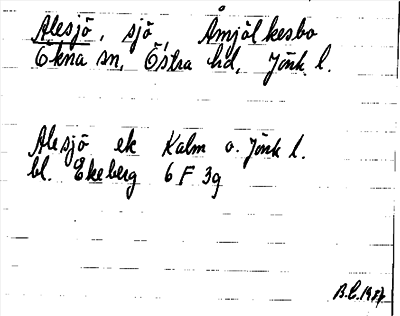 Alesjö, sjö, Åmjölkesbo
Ökna sn, Östra hd, Jönk l.
Alesjö ek Kalm o. Jönk l.
bl. Ekeberg 6 F 3g